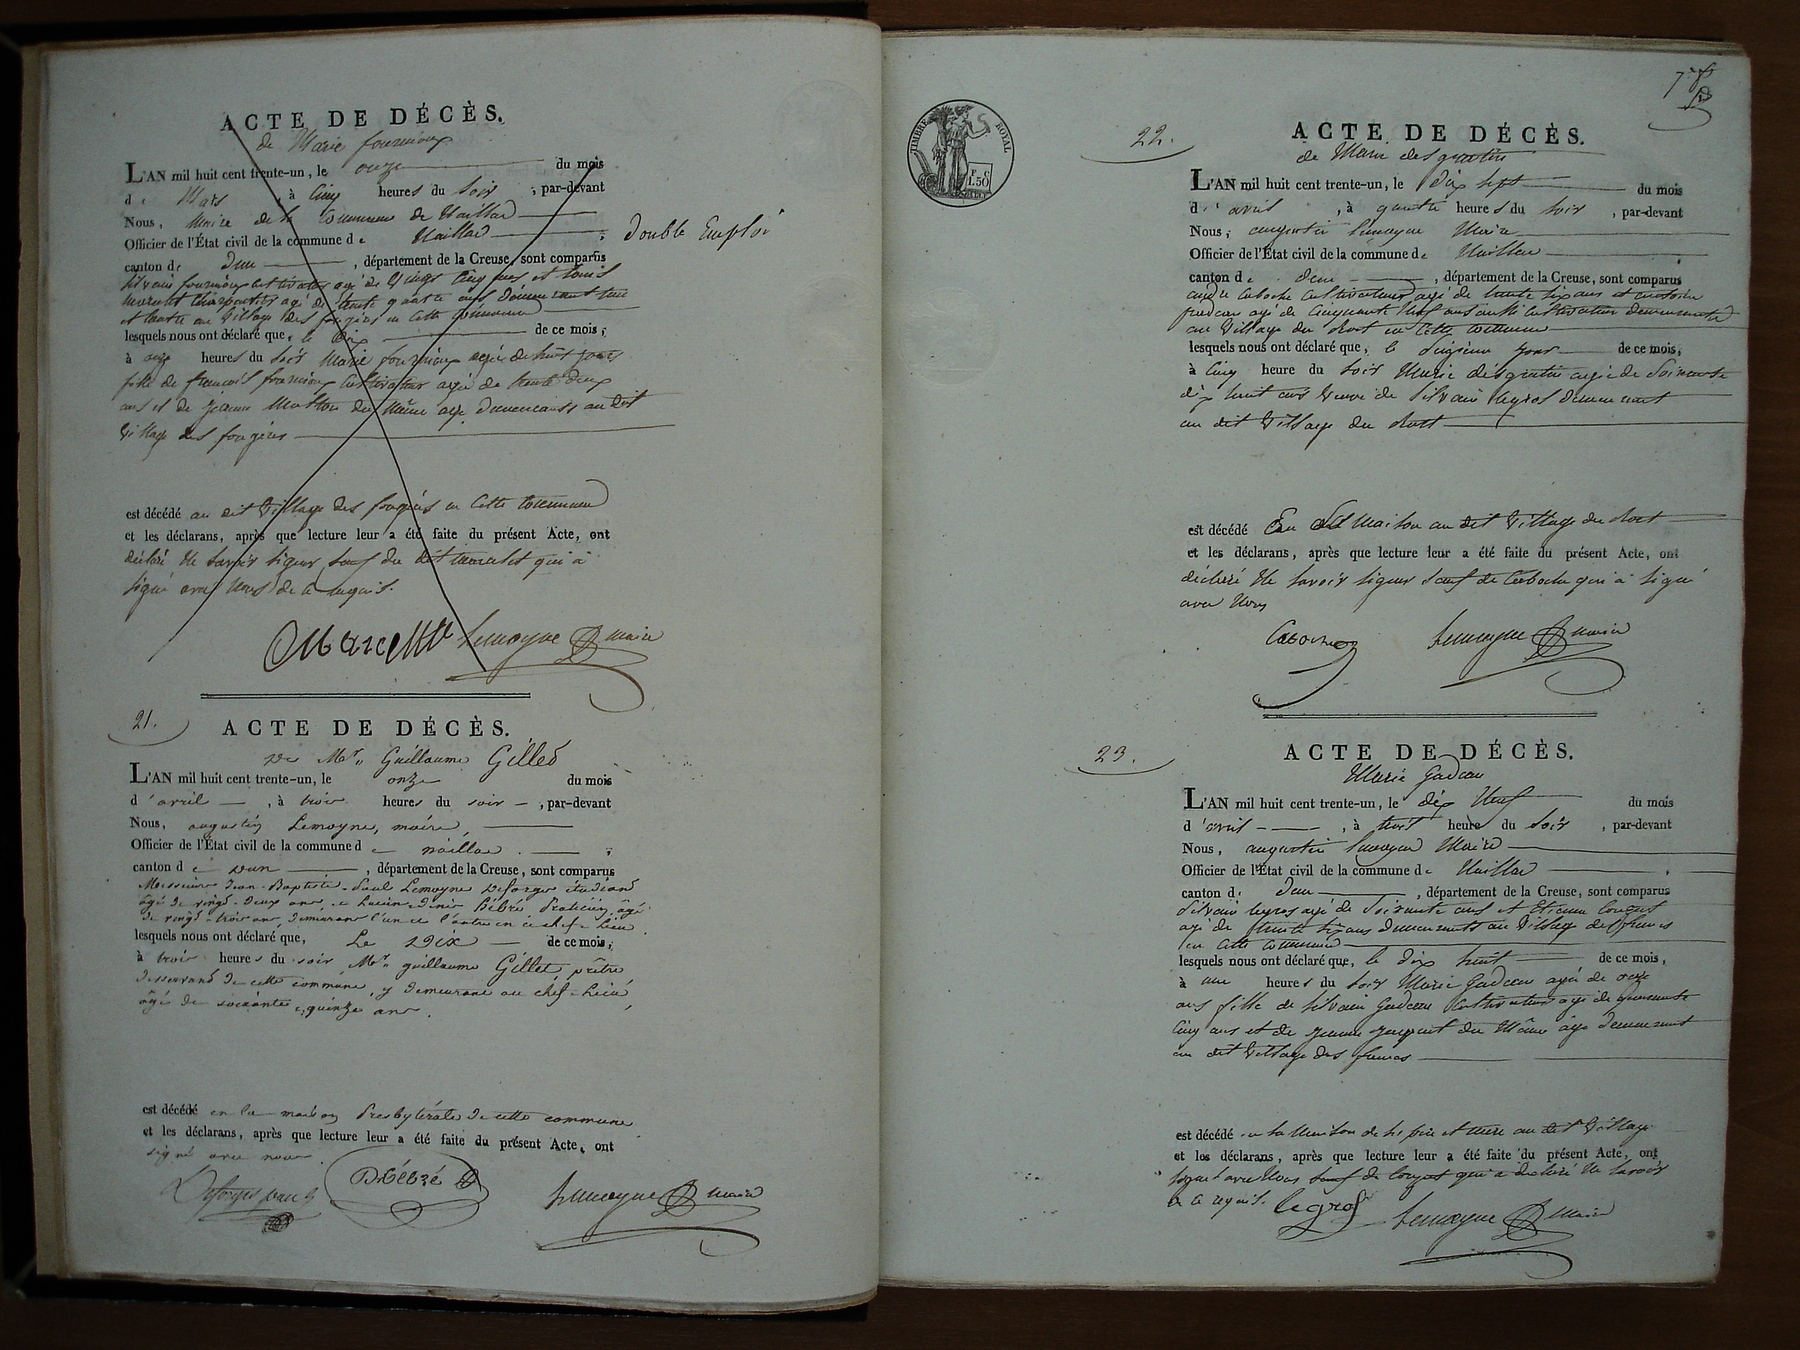 ACTE DE DÉCÈS.
de Marie fournioux
L'AN mil huit cent trente-un, le onze du mois
de Mars, à Cinq heures du Soir, par-devant
Nous, Maire de la Commune de Naillac
Officier de l'État civil de la commune de Naillac;
canton de dun, département de la Creuse, sont comparus
Silvain fournioux cultivateur agé de Vingt Cinq ans et
Charpentier agé de trente quatre ans demeurant
et l'autre au Village des fougères en Cette Commune
lesquels nous ont déclaré que, le Dix de ce mois;
à onze heures du Soir Marie fournioux agée de huit jours
fille de françois fournioux Cultivateur agé de trente deux
ans et de jeanne du Même age demeurants au dit
Village des fougères
double Emploi
est décédé au dit Village des fougères en Cette Commune
et les déclarans, après que lecture leur a été faite du présent Acte, ont
déclaré Ne Savoir Signer Sauf du dit qui a
Signé avec Nous de Ce Requis.
Lemoyne maire
21. ACTE DE DÉCÈS.
de Mr. Guillaume Gillet
L'AN mil huit cent trente-un, le onze du mois
d'avril, à trois heures du soir, par-devant
Nous, augustin Lemoyne, maire,
Officier de l'État civil de la commune de naillac;
canton de dun, département de la Creuse, sont comparus
Messieurs Jean-Baptiste-Paul Lemoyne Desforges étudiant
âgé de vingt-deux ans, et Lucien-Denis Bébré Praticien, âgé
de vingt-trois ans, demeurans l'un et l'autre en ce chef-Lieu
lesquels nous ont déclaré que, Le Dix de ce mois;
à trois heures du soir Mr. guillaume Gillet, prêtre
desservant de cette commune, y demeurant au chef-Lieu,
âgé de soixante-quinze ans.
est décédé en la maison Presbytérale de cette commune
et les déclarans, après que lecture leur a été faite du présent Acte, ont
signé avec nous.
DBébré Lemoyne maire
TIMBRE ROYAL
F. C.
1.50
22. ACTE DE DÉCÈS.
de Marie desgouttes
L'AN mil huit cent trente-un, le Dix Sept du mois
d'avril, à quatre heures du Soir, par-devant
Nous, augustin Lemoyne Maire
Officier de l'État civil de la commune de Naillac;
canton de dun, département de la Creuse, sont comparus
Caboche Cultivateur agé de trente Six ans et
agé de Cinquante Neuf ans aussi Cultivateur demeurants
au Village du en Cette Commune
lesquels nous ont déclaré que, le Seizieme jour de ce mois,
à Cinq heure du Soir Marie desgouttes agée de Soixante
dix huit ans Veuve de Silvain Legros demeurant
au dit Village du
est décédé En Sa Maison au dit Village du
et les déclarans, après que lecture leur a été faite du présent Acte, ont
déclaré Ne Savoir Signer Sauf de Caboche qui a Signé
avec Nous
Caboche Lemoyne maire
23. ACTE DE DÉCÈS.
Marie Gadeau
L'AN mil huit cent trente-un, le dix Neuf du mois
d'avril, à huit heure du Soir, par-devant
Nous, augustin Lemoyne Maire
Officier de l'État civil de la commune de Naillac;
canton de dun, département de la Creuse, sont comparus
Silvain Legros agé de Soixante ans et Etienne
agé de trente Six ans demeurants au Village des
en Cette Commune
lesquels nous ont déclaré que, le dix huit de ce mois,
à une heures du Soir Marie Gadeau agée de onze
ans fille de Silvain Gadeau Cultivateur agé de quarante
Cinq ans et de jeanne du Même âge demeurant
au dit Village des
est décédé en la Maison de Ses père et mere au dit Village
et les déclarans, après que lecture leur a été faite du présent Acte, ont
Signé avec Nous Sauf de qui a declaré Ne Savoir
de Ce requis. Legros Lemoyne Maire